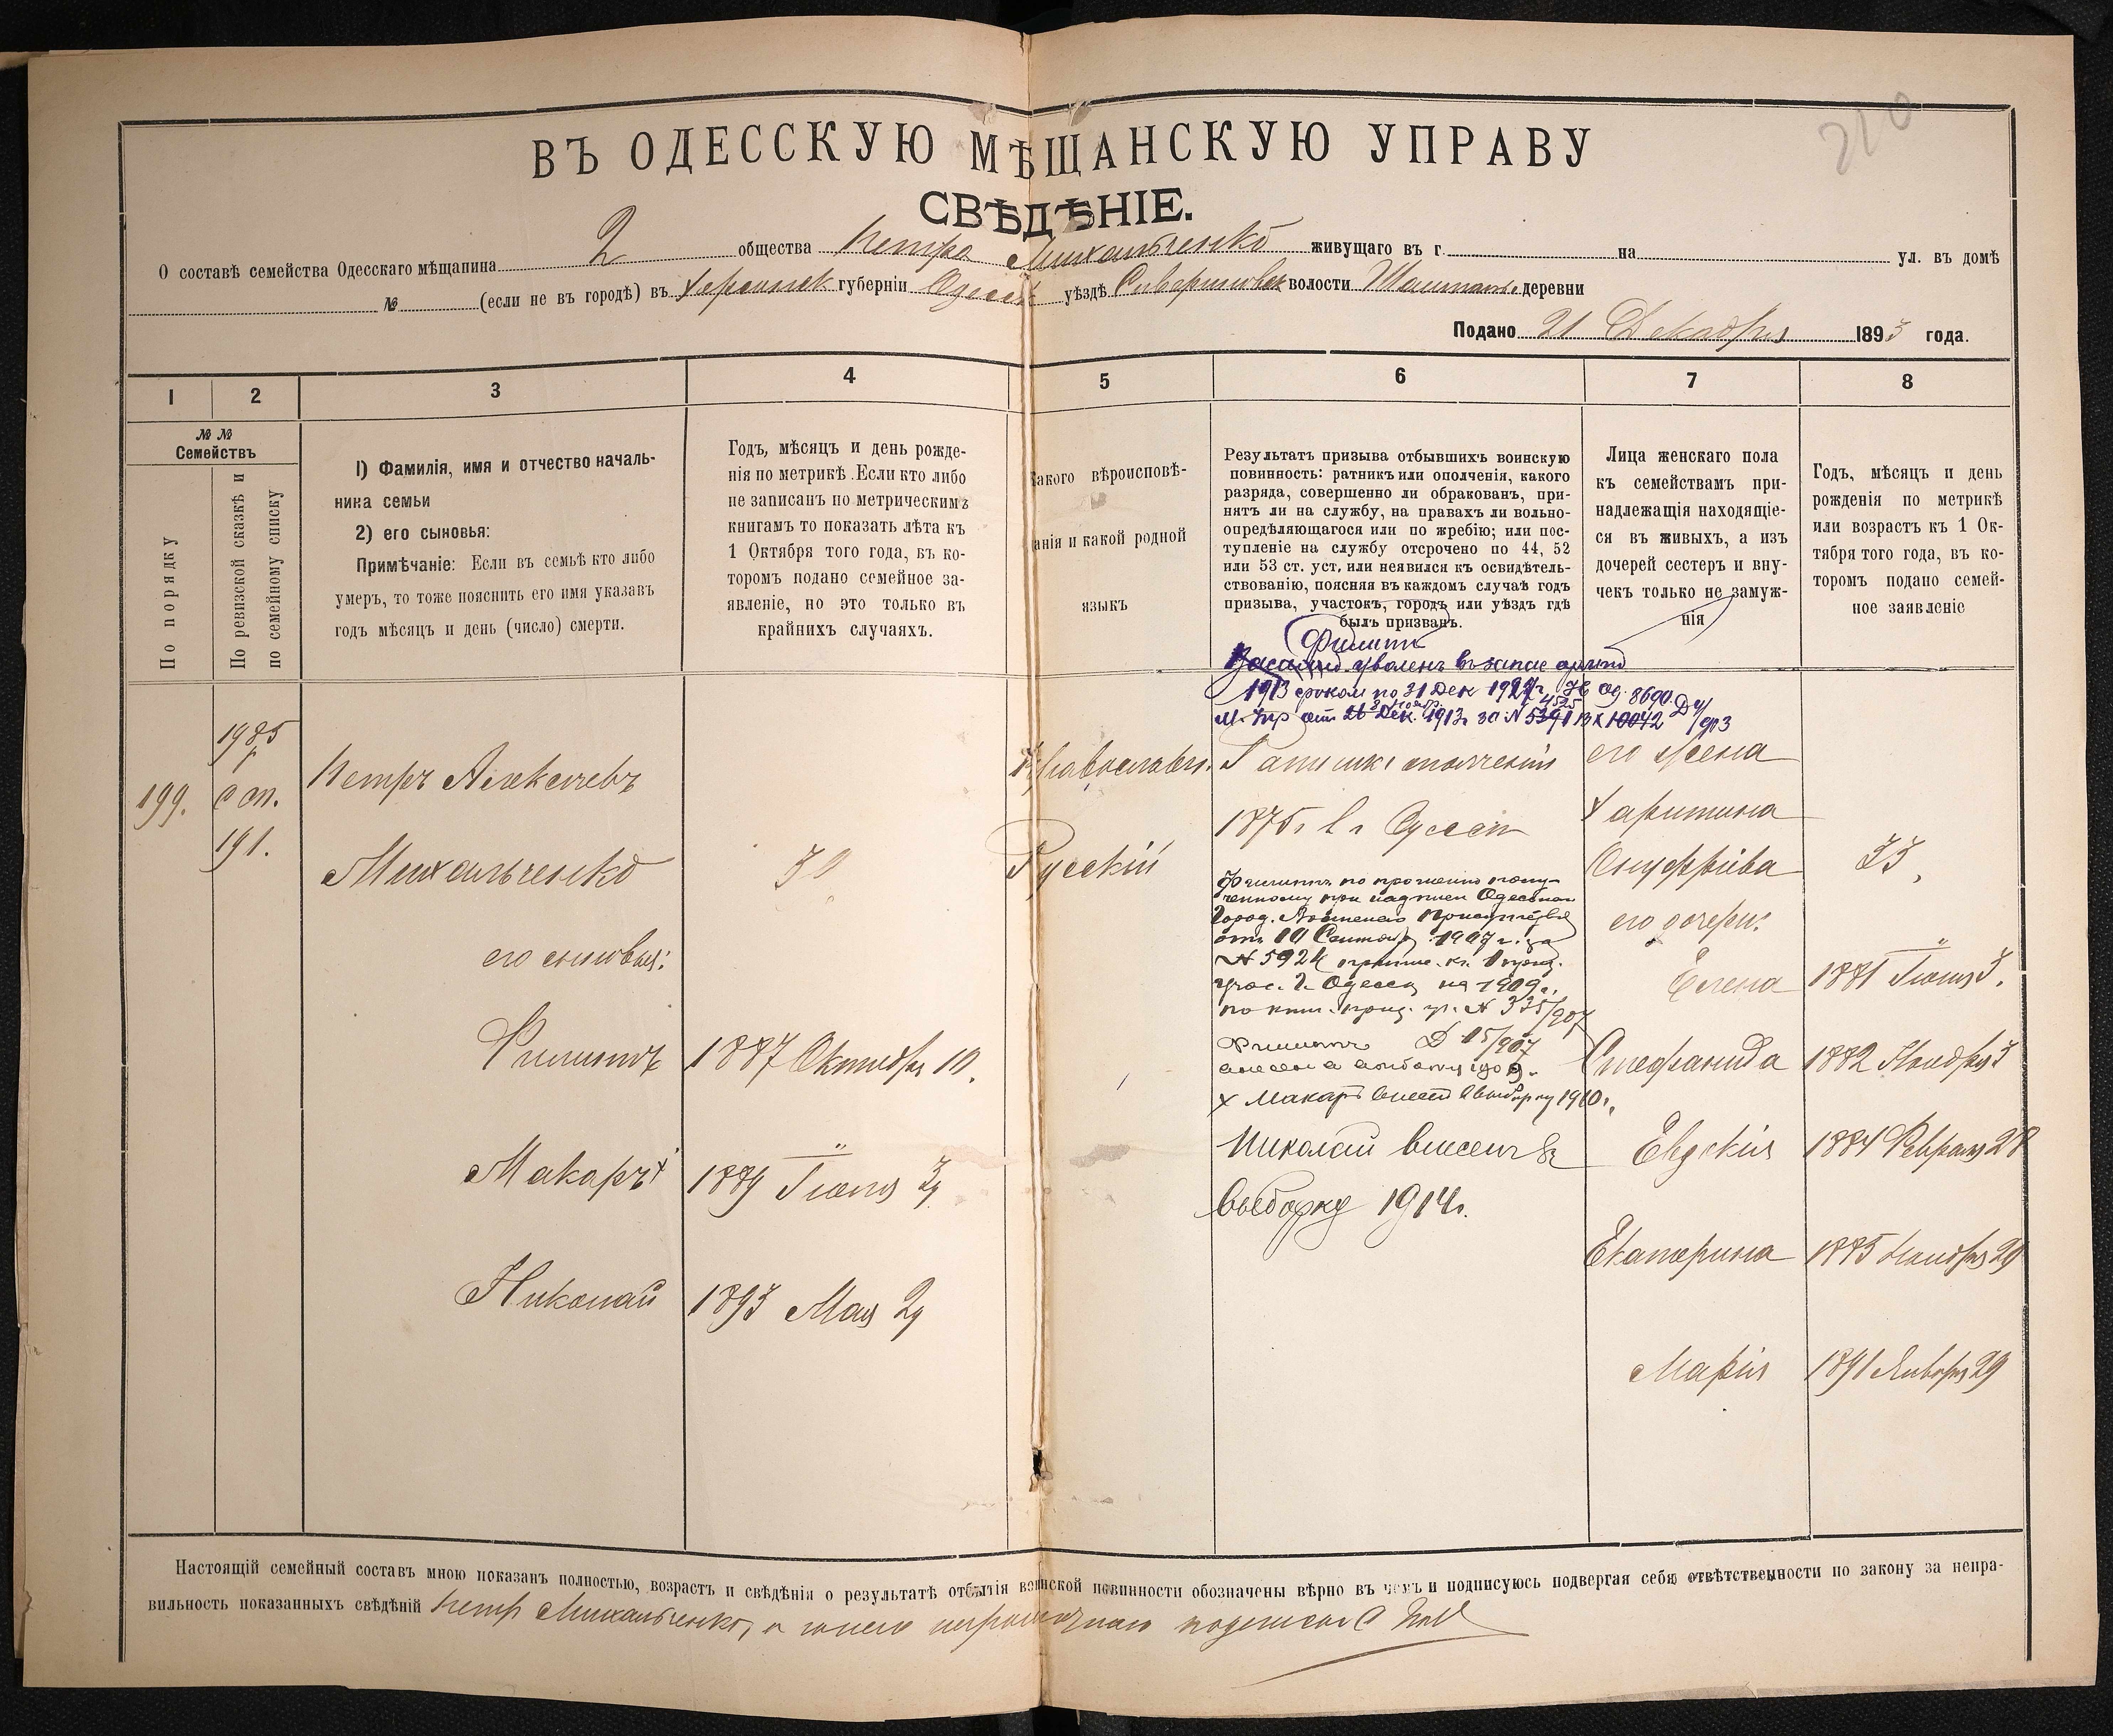 210
ВЪ ОДЕССКУЮ МѢЩАНСКУЮ УПРАВУ
СВѢДѢНІЕ.
О составѣ семейства Одесскаго мѣщанина 2 общества Петра Михальченко живущаго въ г. на ул. въ домѣ
№ (если не въ городѣ) въ Херсонск губерніи Одесск уѣздѣ волости деревни
Подано 21 Декабря 1893 года.
1 2 3 4 5 6 7 8
№ №
Семействъ
По порядку
По ревизской сказкѣ и
по семейному списку
1) Фамилія, имя и отчество началь-
ника семьи
2) его сыновья:
Примѣчаніе: Если въ семьѣ кто либо
умеръ, то тоже пояснить его имя указавъ
годъ мѣсяцъ и день (число) смерти.
Годъ, мѣсяцъ и день рожде-
нія по метрикѣ. Если кто либо
не записанъ по метрическимъ
книгамъ то показать лѣта къ
1 Октября того года, въ ко-
торомъ подано семейное за-
явленіе, но это только въ
крайнихъ случаяхъ.
Какого вѣроисповѣ-
анія и какой родной
языкъ
Результатъ призыва отбывшихъ воинскую
повинность: ратникъ или ополченія, какого
разряда, совершенно ли обракованъ, при-
нятъ ли на службу, на правахъ ли вольно-
опредѣляющагося или по жребію; или пос-
тупленіе на службу отсрочено по 44, 52
или 53 ст. уст, или неявился къ освидѣтель-
ствованію, поясняя въ каждомъ случаѣ годъ
призыва, участокъ, городъ или уѣздъ гдѣ
былъ призванъ.
Лица женскаго пола
къ семействамъ при-
надлежащія находящіе-
ся въ живыхъ, а изъ
дочерей сестеръ и вну-
чекъ только не замуж-
нія
Годъ, мѣсяцъ и день
рожденія по метрикѣ
или возрастъ къ 1 Ок-
тября того года, въ ко-
торомъ подано семей-
ное заявленіе
Филиппъ
уволенъ въ запас арміи
1913 срокомъ по 31 Дек
199.
191.
Петръ Алексѣевъ
Михальченко
его сыновья:
Филиппъ 1887 Октября 10.
Макаръ х 1889 Іюня 29
Николай 1893 Мая 29
Православн.
Русскій
Ратникъ ополченія
1875 г в г Одессѣ
Филиппъ по прошенію полу-
ченному при надписи Одесскаго
Город. Воинскаго Присутствія
отъ 10 Сентяб. 1907 г. за
№ 5924 припис. къ 1 приз.
учас. г. Одессы на 1909 г.
№ 335/907
Филиппъ Д 15/907
х Макаръ внесенъ въ выборку 1910 г.
Николай внесенъ въ
выборку 1914 г.
его жена
Харитина
Онуфріева 33,
его дочери:
Елена 1881 Іюня 3.
Стефанида 1882 Ноября 3
Евдокія 1884 Февраля 28
Екатерина 1885 Ноября 29
Марія 1891 Января 29
Настоящій семейный составъ мною показанъ полностью, возрастъ и свѣдѣнія о результатѣ отбытія воинской повинности обозначены вѣрно въ чемъ и подписуюсь подвергая себя отвѣтственности по закону за непра-
вильность показанныхъ свѣдѣній Петр Михальченко, а